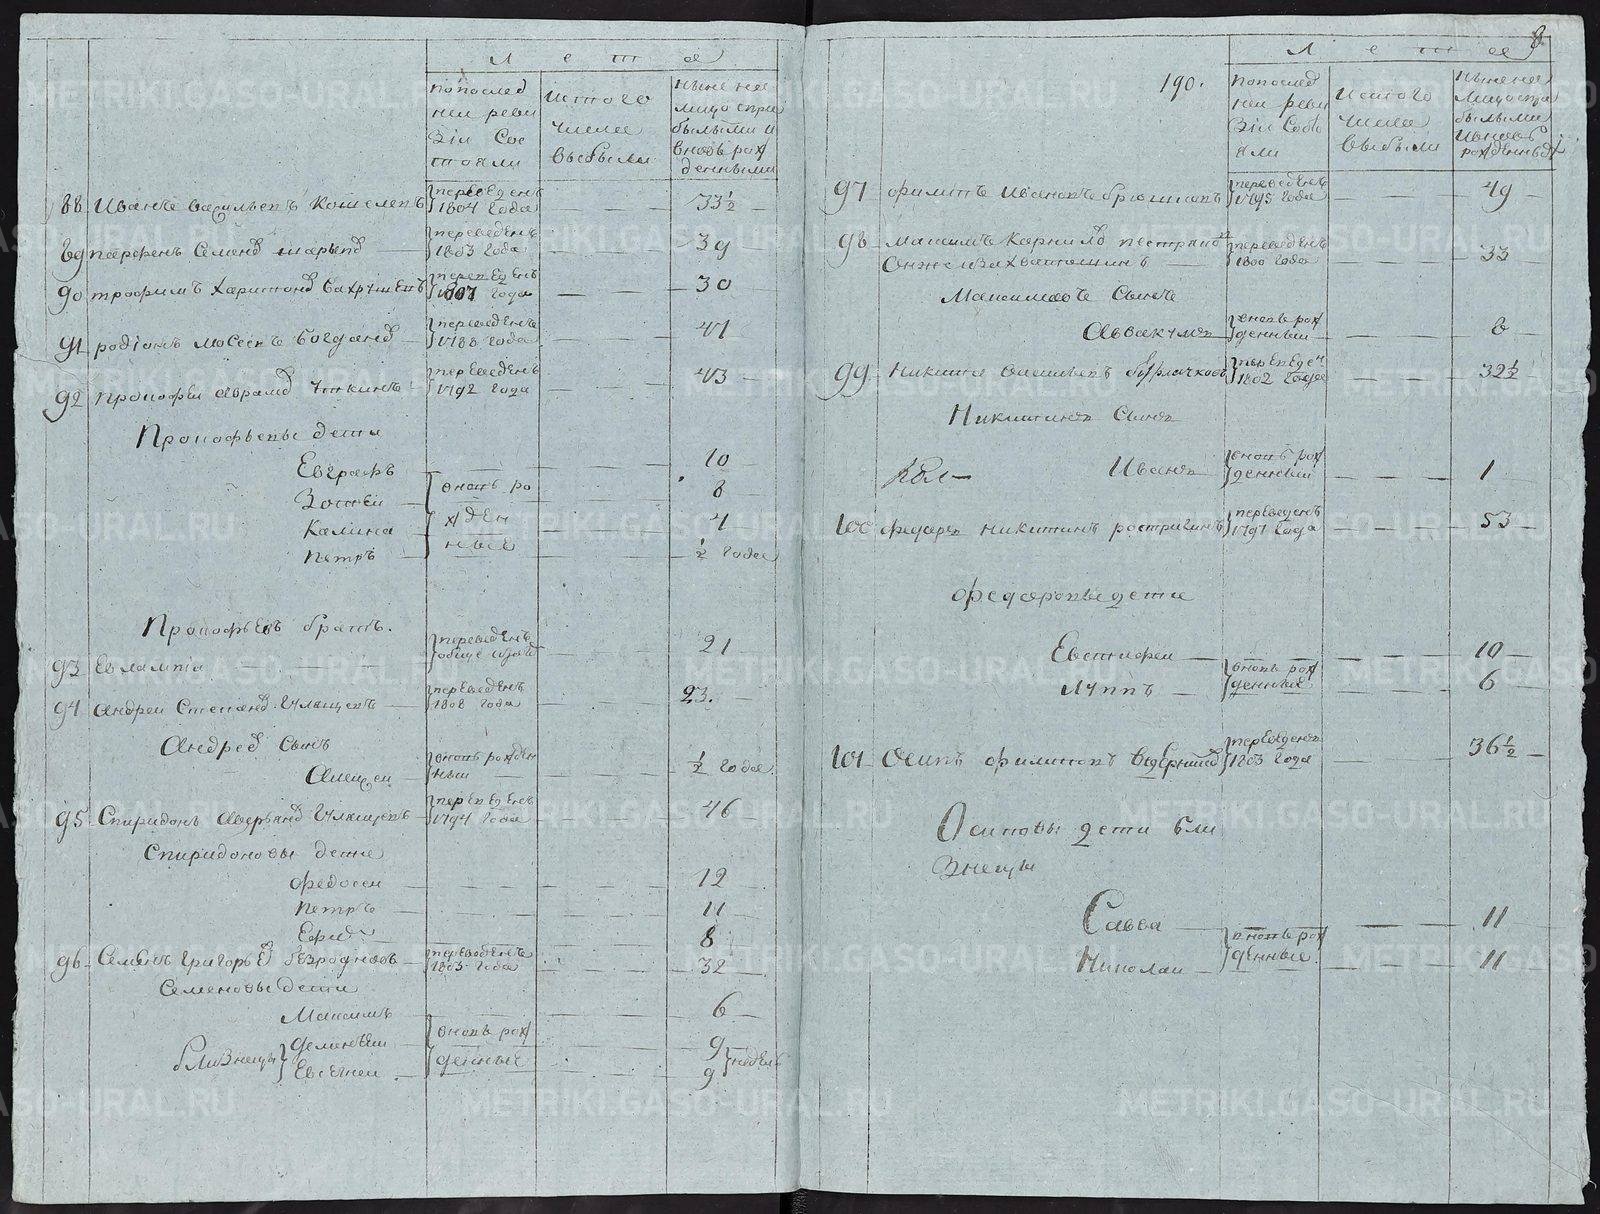 Лета
попослед
ней реви
зіи сос
тояли
истого
числа
выбыли
ныне на
лицо спри
былыми и
вновь рож
денными
88 Иванъ Васильевъ Кошелевъ переведенъ 1804 года 33½
89 парфенъ Семенов переведенъ 1803 года 39
90 трофимъ Харитонов Вахрушевъ переведенъ года 30
91 родіонъ Мосеевъ Богданов переведенъ 1788 года 41
92 Прокофеи Абрамов Уткинъ переведенъ 1792 года 43
Прокофьевы дети
Евграфъ 10
Зотеи вновь ро 8
Калина жден 4
Петръ ные ½ года
Прокофьевъ братъ.
93 Евлампіи переведенъ 21
94 Андреи Степанов переведенъ 1808 года 23.
Андреев сынъ
Алексеи вновь рожден ныи ½ года
95 Спиридонъ Аверьянов переведенъ 1794 года 46
Спиридоновы дети
Федосеи 12
Петръ 11
8
96 Семенъ Григорьев Безродновъ переведенъ 1803 года 32
Семеновы дети
Максимъ 6
близнецы Дементеи вновь рож 9 недель
Евсегнеи денные 9
8
190.
Лета
попослед
ней реви
зіи состо
яли
истого
числа
выбыли
ныне на
лицо спри
былыми
ивновь
рожденным
97 Филипъ Ивановъ переведенъ 1793 года 49
98 Максимъ Карнилов пестраков переведенъ 1800 года 33
Онже
Максимовъ сынъ
Аввакумъ вновь рож денныи 8
99 Никита Алексеевъ Бурлачковъ переведен 1802 года 32½
Никитинъ сынъ
Иванъ вновь рож денныи 1
100 Федоръ Никитинъ растригинъ переведенъ 1797 года 53
Федоровы дети
Евстифеи вновь рож 10
Луппъ денные 6
101 Осипъ Филиповъ Ведерников переведенъ 1803 года 36½
Осиповы дети бли
знецы
Савва вновь рож 11
Николаи денные 11
METRIKI.GASO-URAL.RU